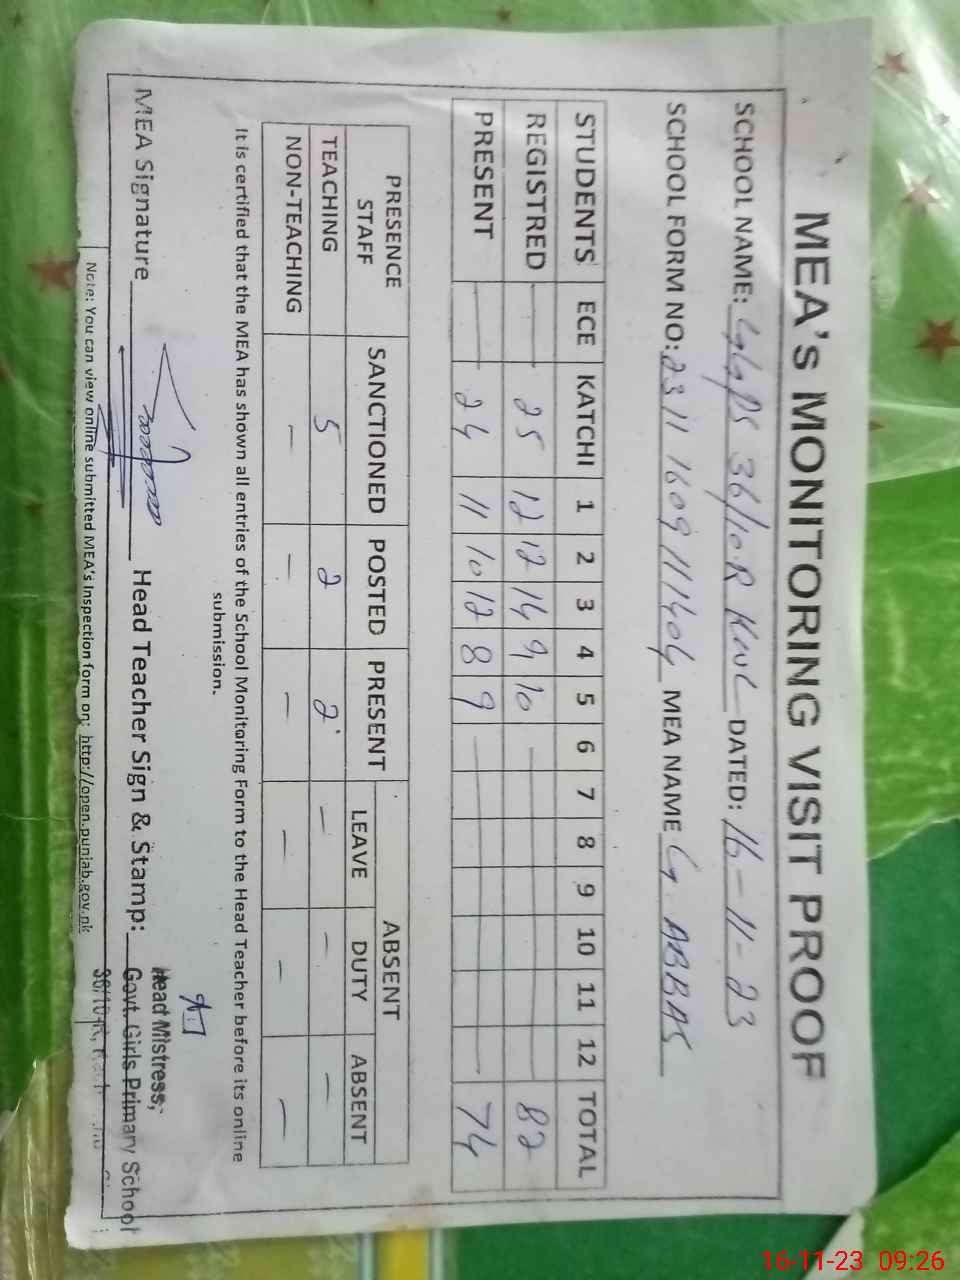 MEA's MONITORING VISIT PROOF
SCHOOL NAME: GGPS 36/10.R KWL DATED: 16-11-23
SCHOOL FORM NO: 2311160911404 MEA NAME G. ABBAS
STUDENTS ECE KATCHI 1 2 3 4 5 6 7 8 9 10 11 12 TOTAL
REGISTRED — 25 12 12 14 9 10 — 82
PRESENT — 24 11 10 12 8 9 — 74
PRESENCE STAFF SANCTIONED POSTED PRESENT ABSENT
LEAVE DUTY ABSENT
TEACHING 5 2 2 — — —
NON-TEACHING — — — — — —
It is certified that the MEA has shown all entries of the School Monitoring Form to the Head Teacher before its online
submission.
MEA Signature Head Teacher Sign & Stamp:
Head Mistress,
Govt. Girls Primary School
Note: You can view online submitted MEA's Inspection form on: http://open.punjab.gov.pk
16-11-23 09:26